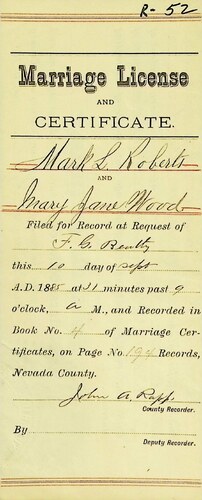 R-52
Marriage License
AND
CERTIFICATE.
Mark L. Roberts
AND
Mary Jane Wood
Filed for Record at Request of
F. G. Beatty
this 10 day of Sept
A.D. 1885 at 31 minutes past 9
o'clock, a M., and Recorded in
Book No. 4 of Marriage Cer-
tificates, on Page No. 194 Records,
Nevada County.
John A. Rapp
County Recorder.
By
Deputy Recorder.